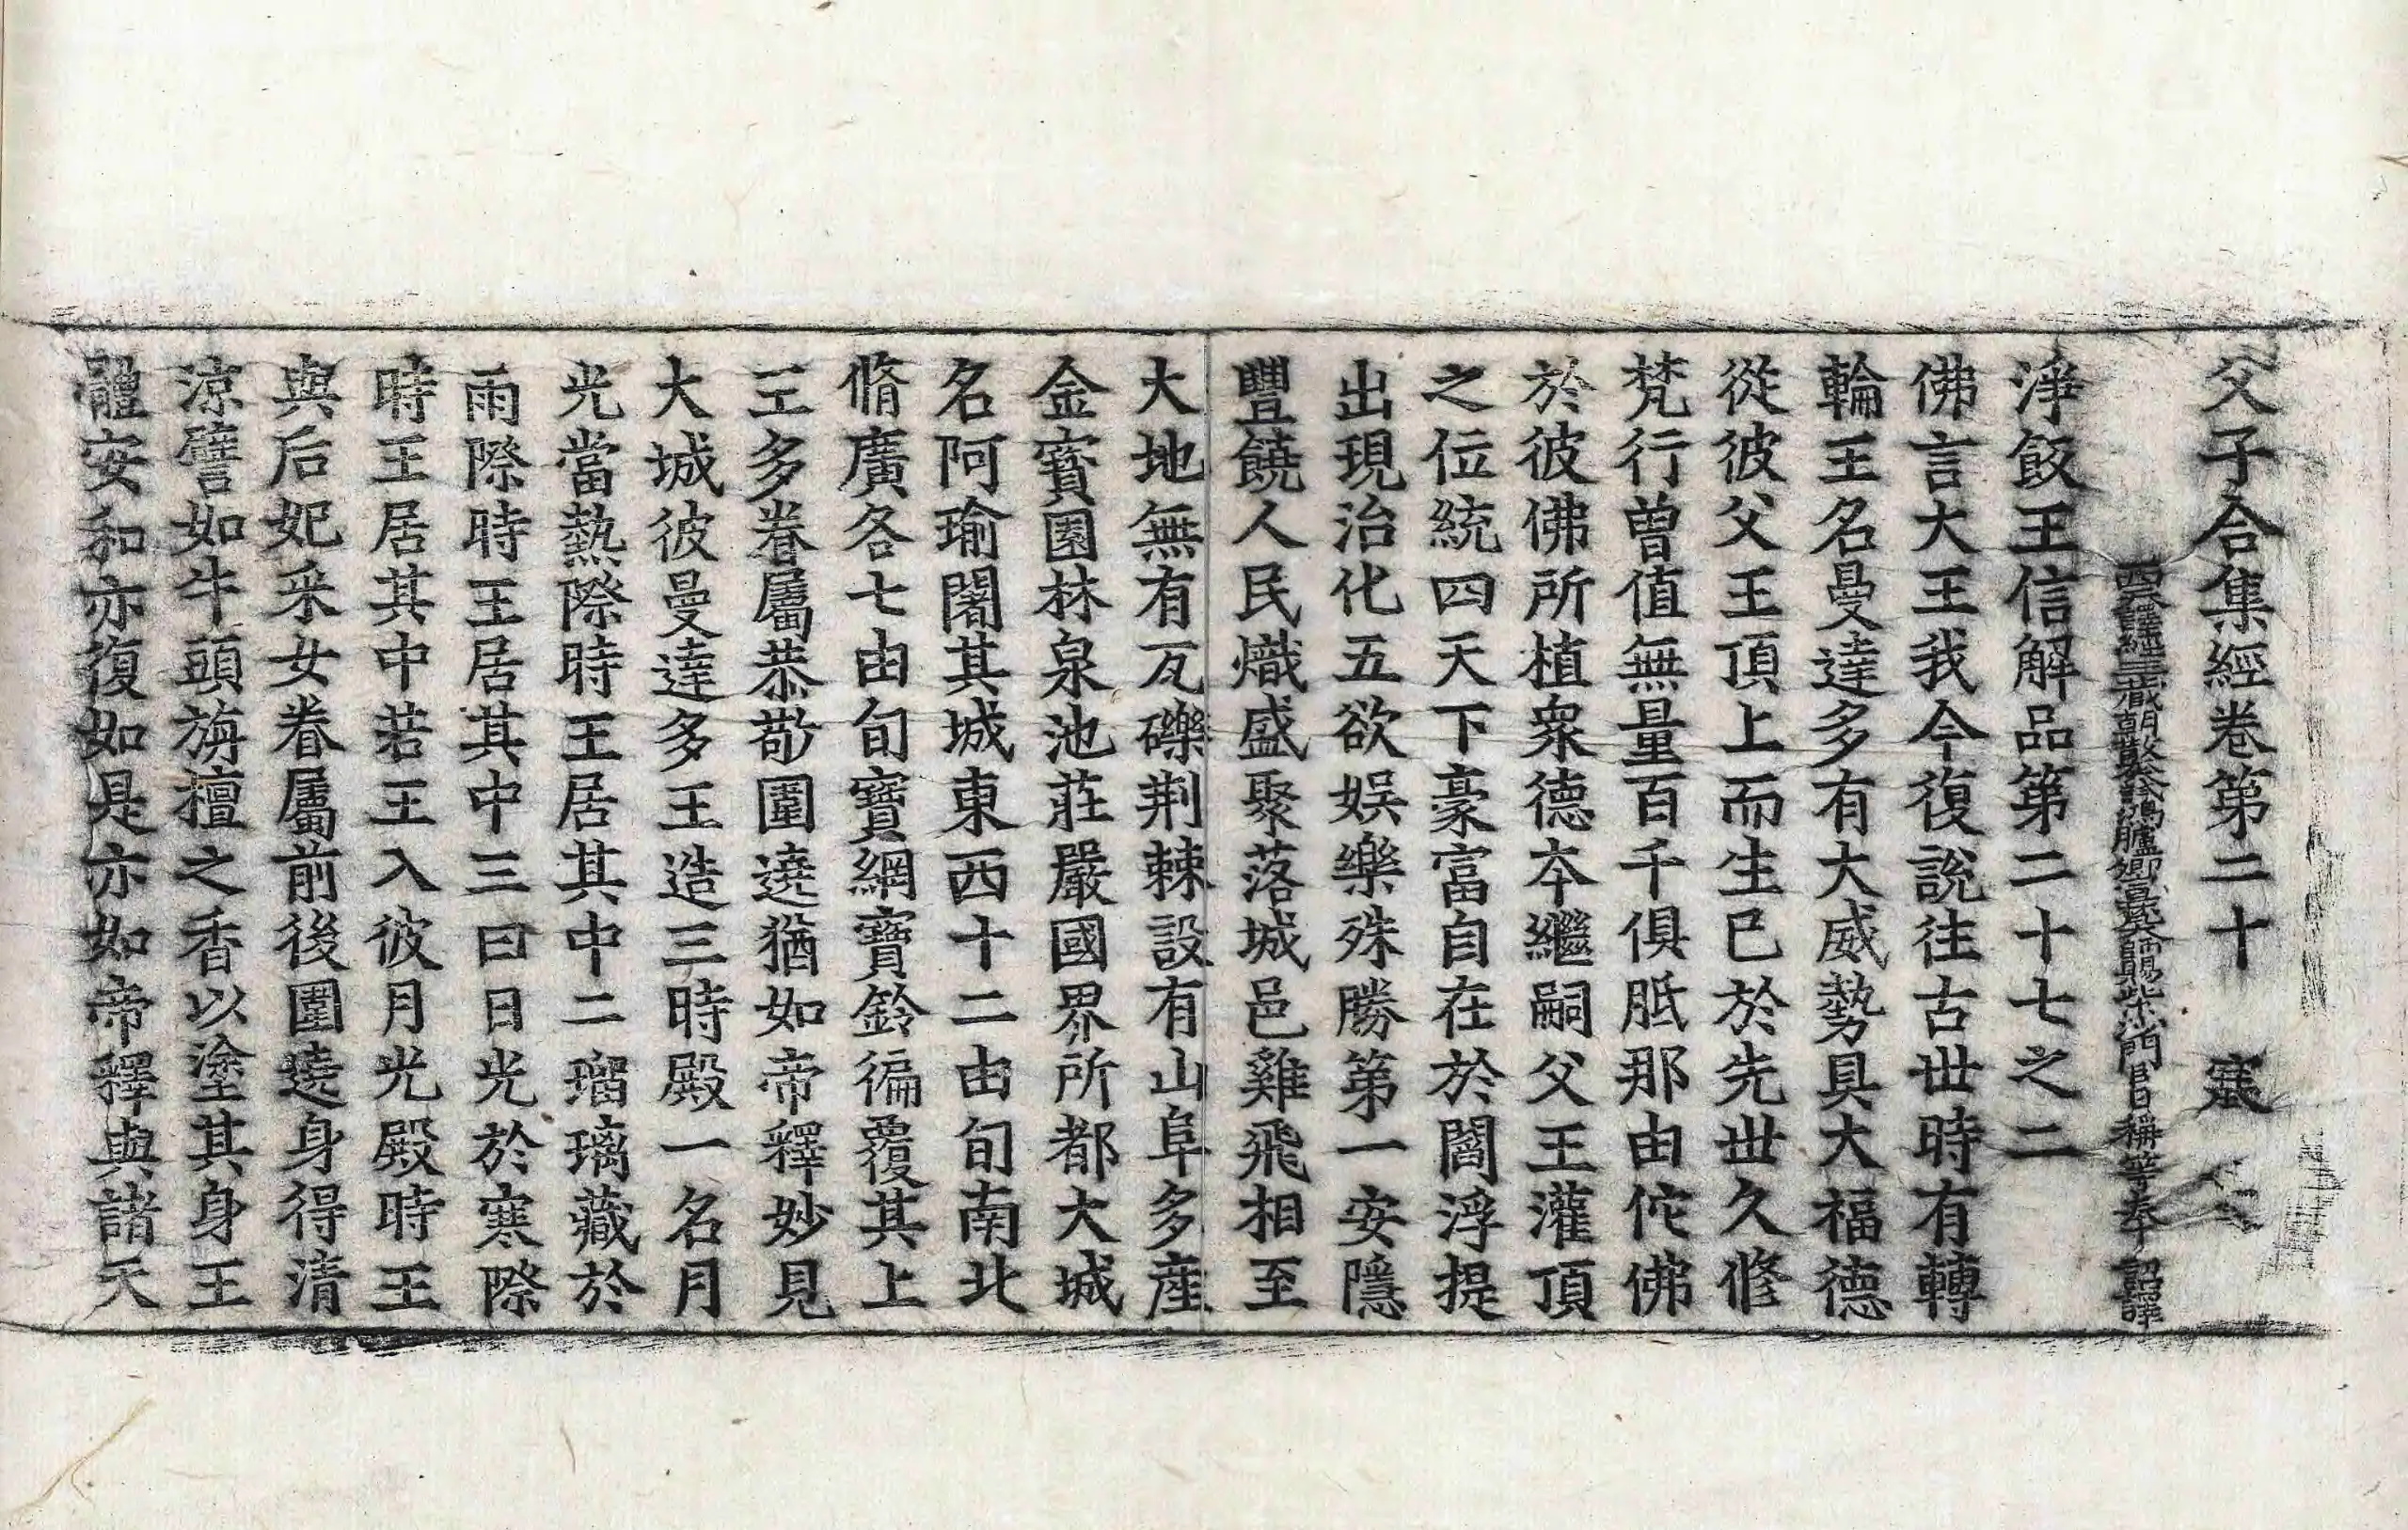 父子合集經卷第二十 寔
西天譯經三藏朝散大夫試鴻臚卿宣梵大師賜紫沙門臣日稱等奉 詔譯
淨飯王信解品第二十七之二
佛言大王我今復說往古世時有轉
輪王名曼達多有大威勢具大福德
從彼父王頂上而生已於先世久修
梵行曾值無量百千俱胝那由佗佛
於彼佛所植衆德本繼嗣父王灌頂
之位統四天下豪富自在於閻浮提
出現治化五欲娛樂殊勝第一安隱
豐饒人民熾盛聚落城邑雞飛相至
大地無有瓦礫荆棘設有山阜多産
金寶園林泉池莊嚴國界所都大城
名阿瑜闍其城東西十二由旬南北
脩廣各七由旬寶網寶鈴徧覆其上
王多眷屬恭敬圍遶猶如帝釋妙見
大城彼曼達多王造三時殿一名月
光當熱際時王居其中二瑠璃藏於
雨際時王居其中三曰日光於寒際
時王居其中若王入彼月光殿時王
與后妃采女眷屬前後圍遶身得清
涼譬如牛頭旃檀之香以塗其身王
體安和亦復如是亦如帝釋與諸天